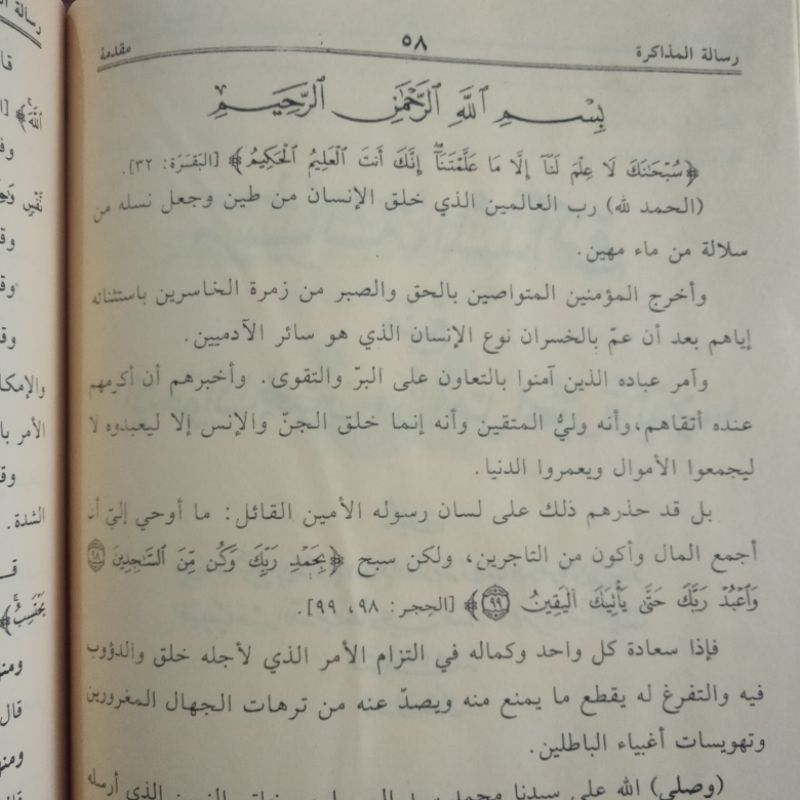 رسالة المذاكرة ٥٨ مقدمة
بِسْمِ اللَّهِ الرَّحْمَٰنِ الرَّحِيمِ
﴿سُبْحَٰنَكَ لَا عِلْمَ لَنَآ إِلَّا مَا عَلَّمْتَنَآ إِنَّكَ أَنتَ ٱلْعَلِيمُ ٱلْحَكِيمُ﴾ [البَقَرَة: ٣٢].
(الحمد لله) رب العالمين الذي خلق الإنسان من طين وجعل نسله من
سلالة من ماء مهين.
وأخرج المؤمنين المتواصين بالحق والصبر من زمرة الخاسرين باستثنائه
إياهم بعد أن عمّ بالخسران نوع الإنسان الذي هو سائر الآدميين.
وآمر عباده الذين آمنوا بالتعاون على البرّ والتقوى. وأخبرهم أن أكرمهم
عنده أتقاهم، وأنه وليُّ المتقين وأنه إنما خلق الجنّ والإنس إلا ليعبدوه لا
ليجمعوا الأموال ويعمروا الدنيا.
بل قد حذرهم ذلك على لسان رسوله الأمين القائل: ما أوحي إليّ أن
أجمع المال وأكون من التاجرين، ولكن سبح ﴿بِحَمْدِ رَبِّكَ وَكُن مِّنَ ٱلسَّٰجِدِينَ ٩٨
وَٱعْبُدْ رَبَّكَ حَتَّىٰ يَأْتِيَكَ ٱلْيَقِينُ ٩٩﴾ [الحِجر: ٩٨، ٩٩].
فإذا سعادة كل واحد وكماله في التزام الأمر الذي لأجله خلق والدؤوب
فيه والتفرغ له يقطع ما يمنع منه ويصدّ عنه من ترهات الجهال المغرورين
وتهويسات أغبياء الباطلين.
(وصلى) الله على سيدنا محمد الذي أرسله